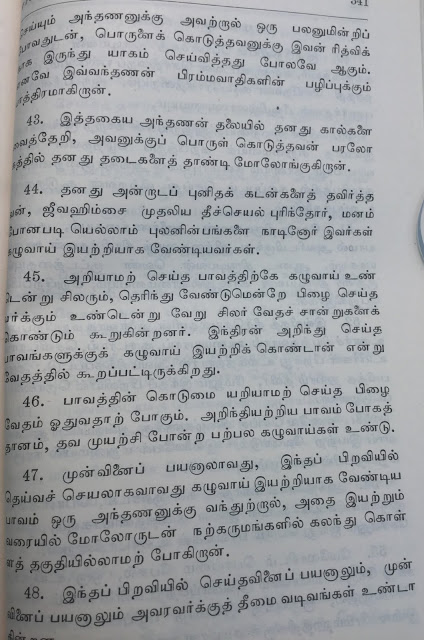 341
செய்யும் அந்தணனுக்கு அவற்றால் ஒரு பலனுமின்றிப்
போவதுடன், பொருளைக் கொடுத்தவனுக்கு இவன் ரித்விக்
காக இருந்து யாகம் செய்வித்தது போலவே ஆகும்.
எனவே இவ்வந்தணன் பிரம்மவாதிகளின் பழிப்புக்கும்
பாத்திரமாகிருன்.
43. இத்தகைய அந்தணன் தலையில் தனது கால்களை
வைத்தேறி, அவனுக்குப் பொருள் கொடுத்தவன் பரலோ
கத்தில் தனது தடைகளைத் தாண்டி மோலோங்குகிருன்.
44. தனது அன்றாடப் புனிதக் கடன்களைத் தவிர்த்த
வன், ஜீவஹிம்சை முதலிய தீச்செயல் புரிந்தோர், மனம்
போனபடி யெல்லாம் புலனின்பங்களை நாடினோர் இவர்கள்
கழுவாய் இயற்றியாக வேண்டியவர்கள்.
45. அறியாமற் செய்த பாவத்திற்கே கழுவாய் உண்
டென்று சிலரும், தெரிந்து வேண்டுமென்றே பிழை செய்த
வர்க்கும் உண்டென்று வேறு சிலர் வேதச் சான்றுகளைக்
கொண்டும் கூறுகின்றனர். இந்திரன் அறிந்து செய்த
பாவங்களுக்குக் கழுவாய் இயற்றிக் கொண்டான் என்று
வேதத்தில் கூறப்பட்டிருக்கிறது.
46. பாவத்தின் கொடுமை யறியாமற் செய்த பிழை
வேதம் ஓதுவதாற் போகும். அறிந்தியற்றிய பாவம் போகத்
தானம், தவ முயற்சி போன்ற பற்பல கழுவாய்கள் உண்டு.
47. முன்வினைப் பயனாலாவது, இந்தப் பிறவியில்
தெய்வச் செயலாகவாவது கழுவாய் இயற்றியாக வேண்டிய
பாவம் ஒரு அந்தணனுக்கு வந்துற்றால், அதை இயற்றும்
வரையில் மோலோருடன் நற்கருமங்களில் கலந்து கொள்
ளத் தகுதியில்லாமற் போகிருன்.
48. இந்தப் பிறவியில் செய்தவினைப் பயனாலும், முன்
வினைப் பயனாலும் அவரவர்க்குத் தீமை வடிவங்கள் உண்டா